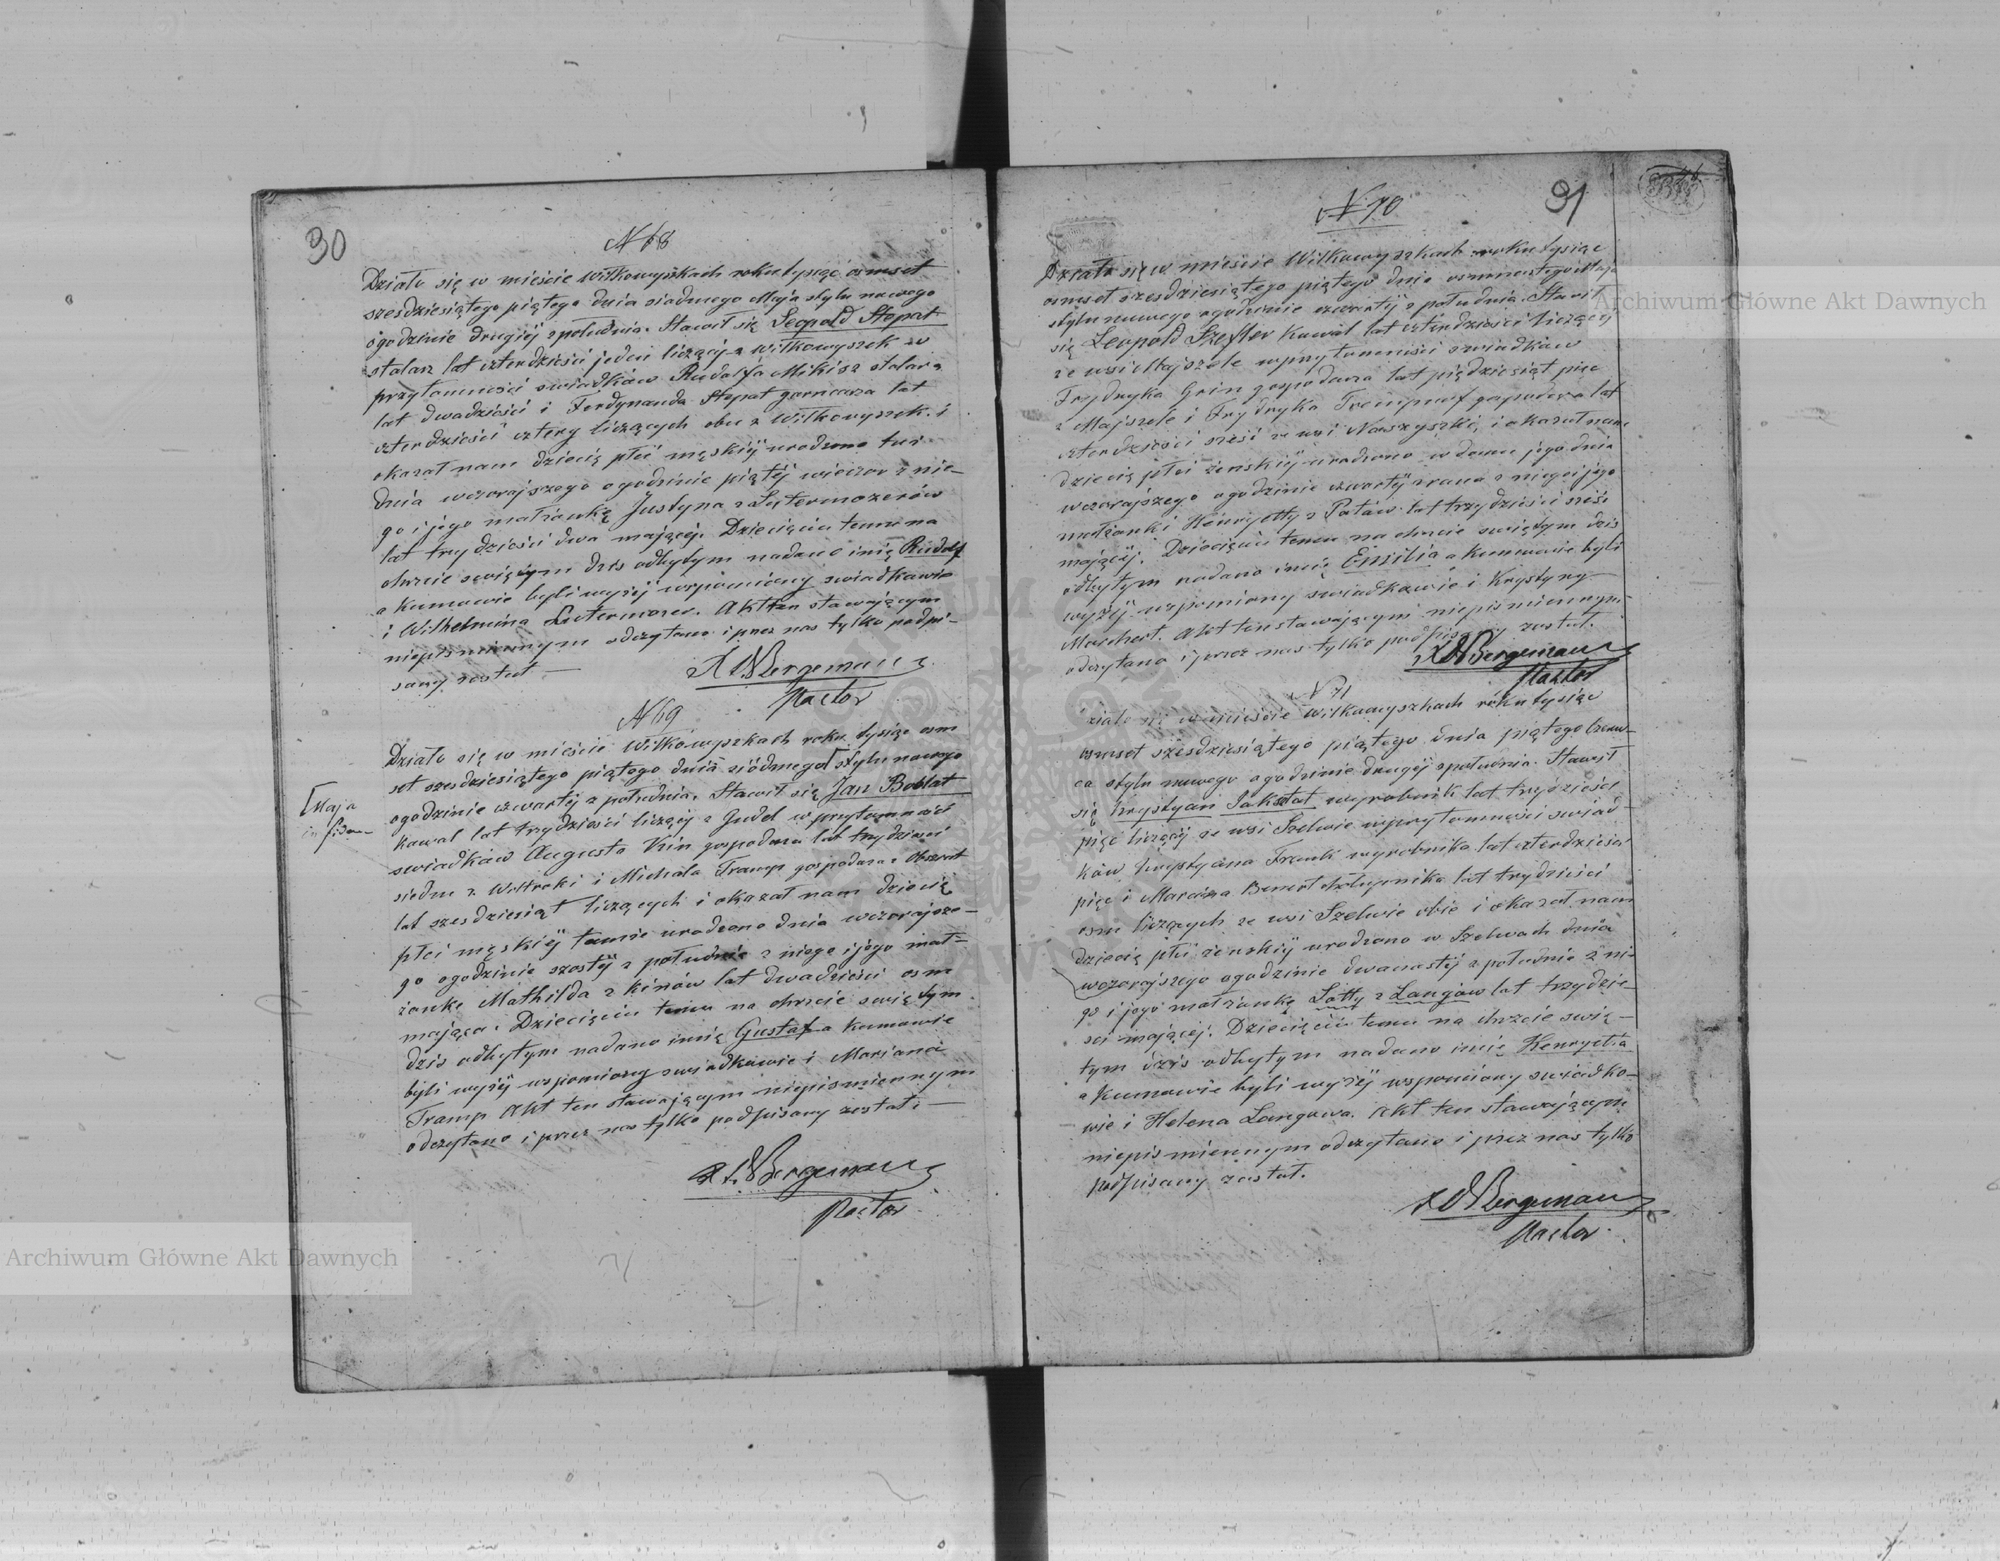 30
N 68
Działo się w mieście Wilkowyszkach roku tysiąc osmset
szesdziesiątego piątego dnia siodmego Maja stylu nowego
ogodzinie drugiéj zpołudnia. Stawił się Leopold Stepat
stolarz lat czterdzieści jeden liczący z Wilkowyszek w
przytomności swiadków Rudolfa Mikisz stolarz
lat dwadzieści i Ferdynanda Stepat garncarza lat
czterdzieści cztery liczących obu z Wilkowyszek i
okazał nam dziecię płci męskiéj urodzone tu
dnia wczorajszego ogodzinie piątéj wieczor z nie-
go i jego małżankę Justyna z Lutermozerów
lat trydzieści dwa mającéj. Dziecięciu temu na
chrzcie swiętym dzis odbytym nadano imię Rudolf
a kumowie byli wyżéj wspomiony swiadkawie
i Wilhelmina Lutermozer. Akt ten stawającym
niepismiennym odczytano i przez nas tylko podpi-
sany zostuł —
Bergemann
Pastor
N 69
Działo się w mieście Wilkowyszkach roku tysiąc osm
set szesdziesiątego piątego dnia siódmego [ stylu nowego
[ Maja
ogodzinie czwartéj z południa. Stawił się Jan Boblat
kowal lat trzydzieści liczący z Gudel wprzytomność
swiadków Augusta Kin gospodarza lat trydzieści
siedm z Woltroki i Michala Tramp gospodarza z
lat szesdziesiąt liczących i okazał nam dziecię
płci męskiéj tamie urodzone dnia wczorajsze-
go ogodzinie szostéj z południa z niego i jego mał-
żankę Mathilda z Kinów lat dwadzieści osm
mająca. Dziecięciu temu na chrzcie swiętym
dzis odbytym nadano imię Gustaf a kumowie
byli wyżéj wspomiony swiadkawie i Mariana
Tramp Akt ten stawającym niepismiennym
odczytano i przez nas tylko podpisany zostuł. —
Bergemann
Pastor
31
N 70
Działo się w mieście Wilkowyszkach roku tysiąc
osmset szesdziesiątego piątego dnia osmnastego Maja
stylu nowego ogodzinie czwartéj z południa. Stawił
się Leopold Szefler kowal lat czterdzieści liczący
ze wsi Majszele wprzytomności swiadków
Frydryka Grin gospodarza lat piędziesiąt pięc
z Majszele i Frydryka gospodarza lat
czterdzieści sześć ze wsi i okazał nam
dziecię płci żenskiéj urodzono w domu jego dnia
wczorajszego ogodzinie czwartéj zrana z niego i jego
małżanki Henryetty z Patów lat trzydzieści sześć
mającéj. Dziecięciu temu na chrzcie swiętym dzis
odbytym nadano imię Emilia a kumowie byli
wyżéj wspomiony swiadkowie i Krystyny
Akt ten stawającymi niepismiennym
odczytano i przez nas tylko podpisany zostuł.
Bergemann
Pastor
N 71
Działo się w mieście Wilkowyszkach roku tysiąc
osmset szesdziesiątego piątego dnia piątego Czerw-
ca stylu nowego ogodzinie drugéj zpołudnia. Stawił
się Krystyan Jakstat wyrobnik lat trydzieści
pięc liczącéj ze wsi Szelwie wprzytomności swiad-
ków Krystyana Frank wyrobnika lat czterdzieści
pięc i Marcina lat trydzieści
osm liczących ze wsi Szelwie obie i okazał nam
dziecię płci żenskiéj urodzono w Szelwach dnia
wczorajszego ogodzinie dwanastéj zpołudnia z ni-
go i jego małżankę Lotty z Langów lat trzydzie-
sci mającéj. Dziecięciu temu na chrzcie swię-
tym dzis odbytym nadano imię Henryetta
a kumowie byli wyżéj wspomiony swiadko-
wie i Helena Langowa. Akt ten stawającym
niepismiennym odczytano i przez nas tylko
podpisany zostuł.
Bergemann
Pastor
Archiwum Główne Akt Dawnych
Archiwum Główne Akt Dawnych